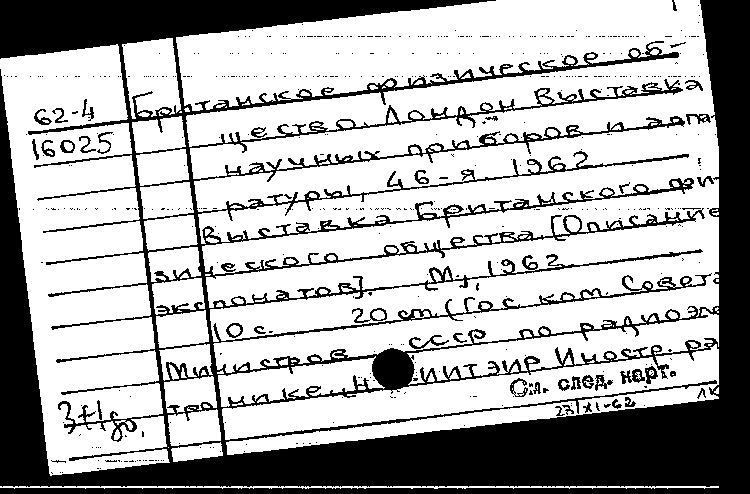 62-4
16025
[Британское физическое об-
щество. Лондон. Выставка
научных приборов и аппа-
ратуры, 46-я. 1962
Выставка Британского фи-
зического общества. [Описание
экспонатов]. [М.], 1962.
10 с. 20 см. (Гос. ком. Совета
Министров СССР по радиоэле
тронике. ИИТЭИР. Иностр. ра
См. след. карт.
23/XI-62